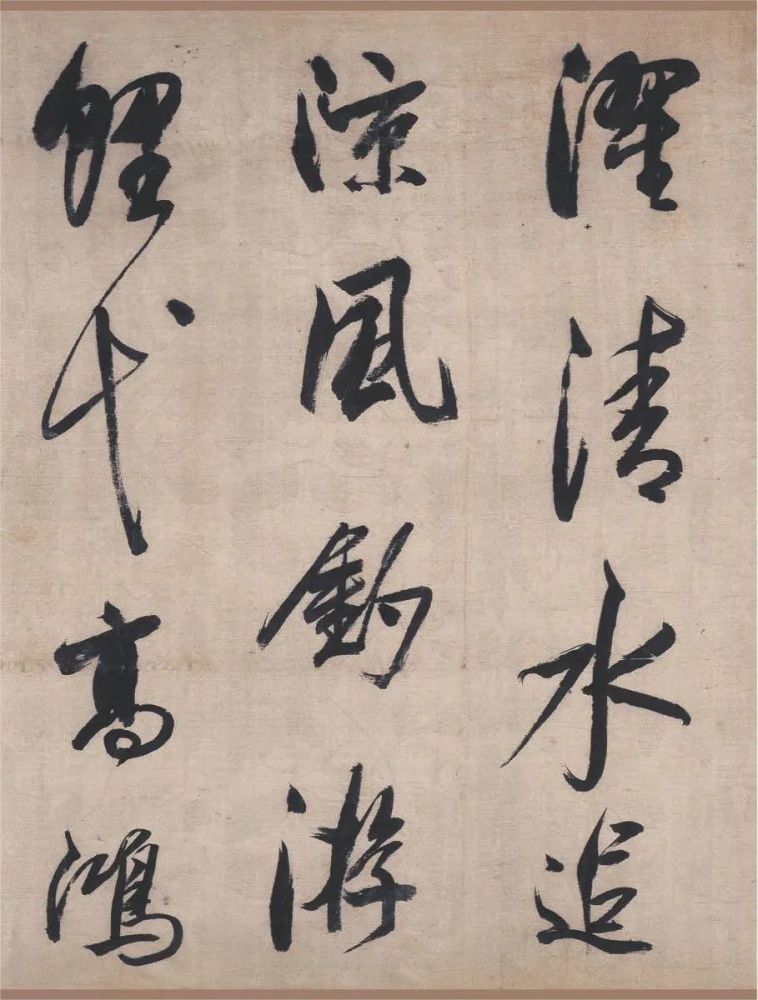 濯清水追
涼風釣游
鯉弋高鴻